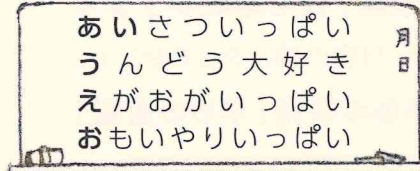 あいさついっぱい
うんどう大好き
えがおがいっぱい
おもいやりいっぱい
月
日